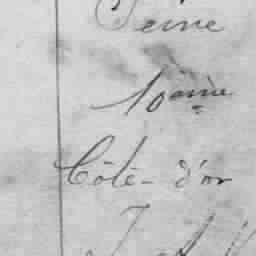 Seine
10ème
Côte-d'or